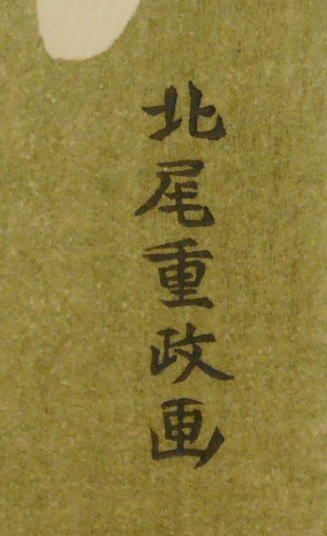 北尾重政画